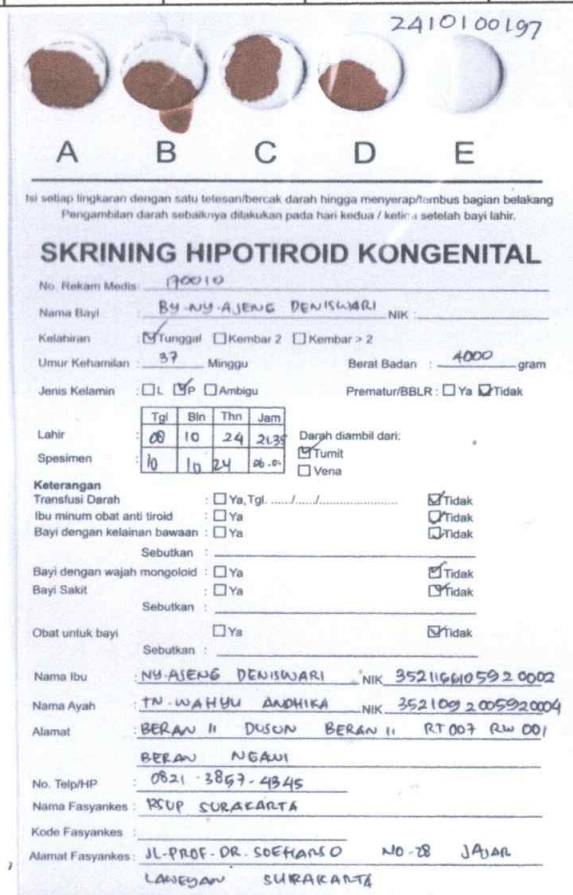 2410100197
A B C D E
Isi setiap lingkaran dengan satu tetesan/bercak darah hingga menyerap/tembus bagian belakang
Pengambilan darah sebaiknya dilakukan pada hari kedua / ketiga setelah bayi lahir.
SKRINING HIPOTIROID KONGENITAL
No. Rekam Medis : 170010
Nama Bayi : BY-NY-AJENG DENISWARI NIK :
Kelahiran : ☑Tunggal ☐Kembar 2 ☐Kembar > 2
Umur Kehamilan : 37 Minggu Berat Badan : 4000 gram
Jenis Kelamin : ☐L ☑P ☐Ambigu Prematur/BBLR : ☐ Ya ☑Tidak
Tgl Bln Thn Jam
Lahir : 08 10 24 21.35 Darah diambil dari:
Spesimen : 10 10 24 06.0- ☑Tumit
☐ Vena
Keterangan
Transfusi Darah : ☐ Ya,Tgl. ....../....../........................ ☑Tidak
Ibu minum obat anti tiroid : ☐ Ya ☑Tidak
Bayi dengan kelainan bawaan : ☐ Ya ☑Tidak
Sebutkan :
Bayi dengan wajah mongoloid : ☐ Ya ☑Tidak
Bayi Sakit : ☐ Ya ☑Tidak
Sebutkan :
Obat untuk bayi ☐Ya ☑Tidak
Sebutkan :
Nama Ibu : NY-AJENG DENISWARI NIK 3521166105920002
Nama Ayah : TN-WAHYU ANDHIKA NIK 3521092005920004
Alamat : BERAN II DUSUN BERAN II RT 007 RW 001
BERAN NGAWI
No. Telp/HP : 0821-3857-4345
Nama Fasyankes : RSUP SURAKARTA
Kode Fasyankes :
Alamat Fasyankes : JL-PROF-DR-SOEHARSO NO-28 JAJAR
LAWEYAN SURAKARTA